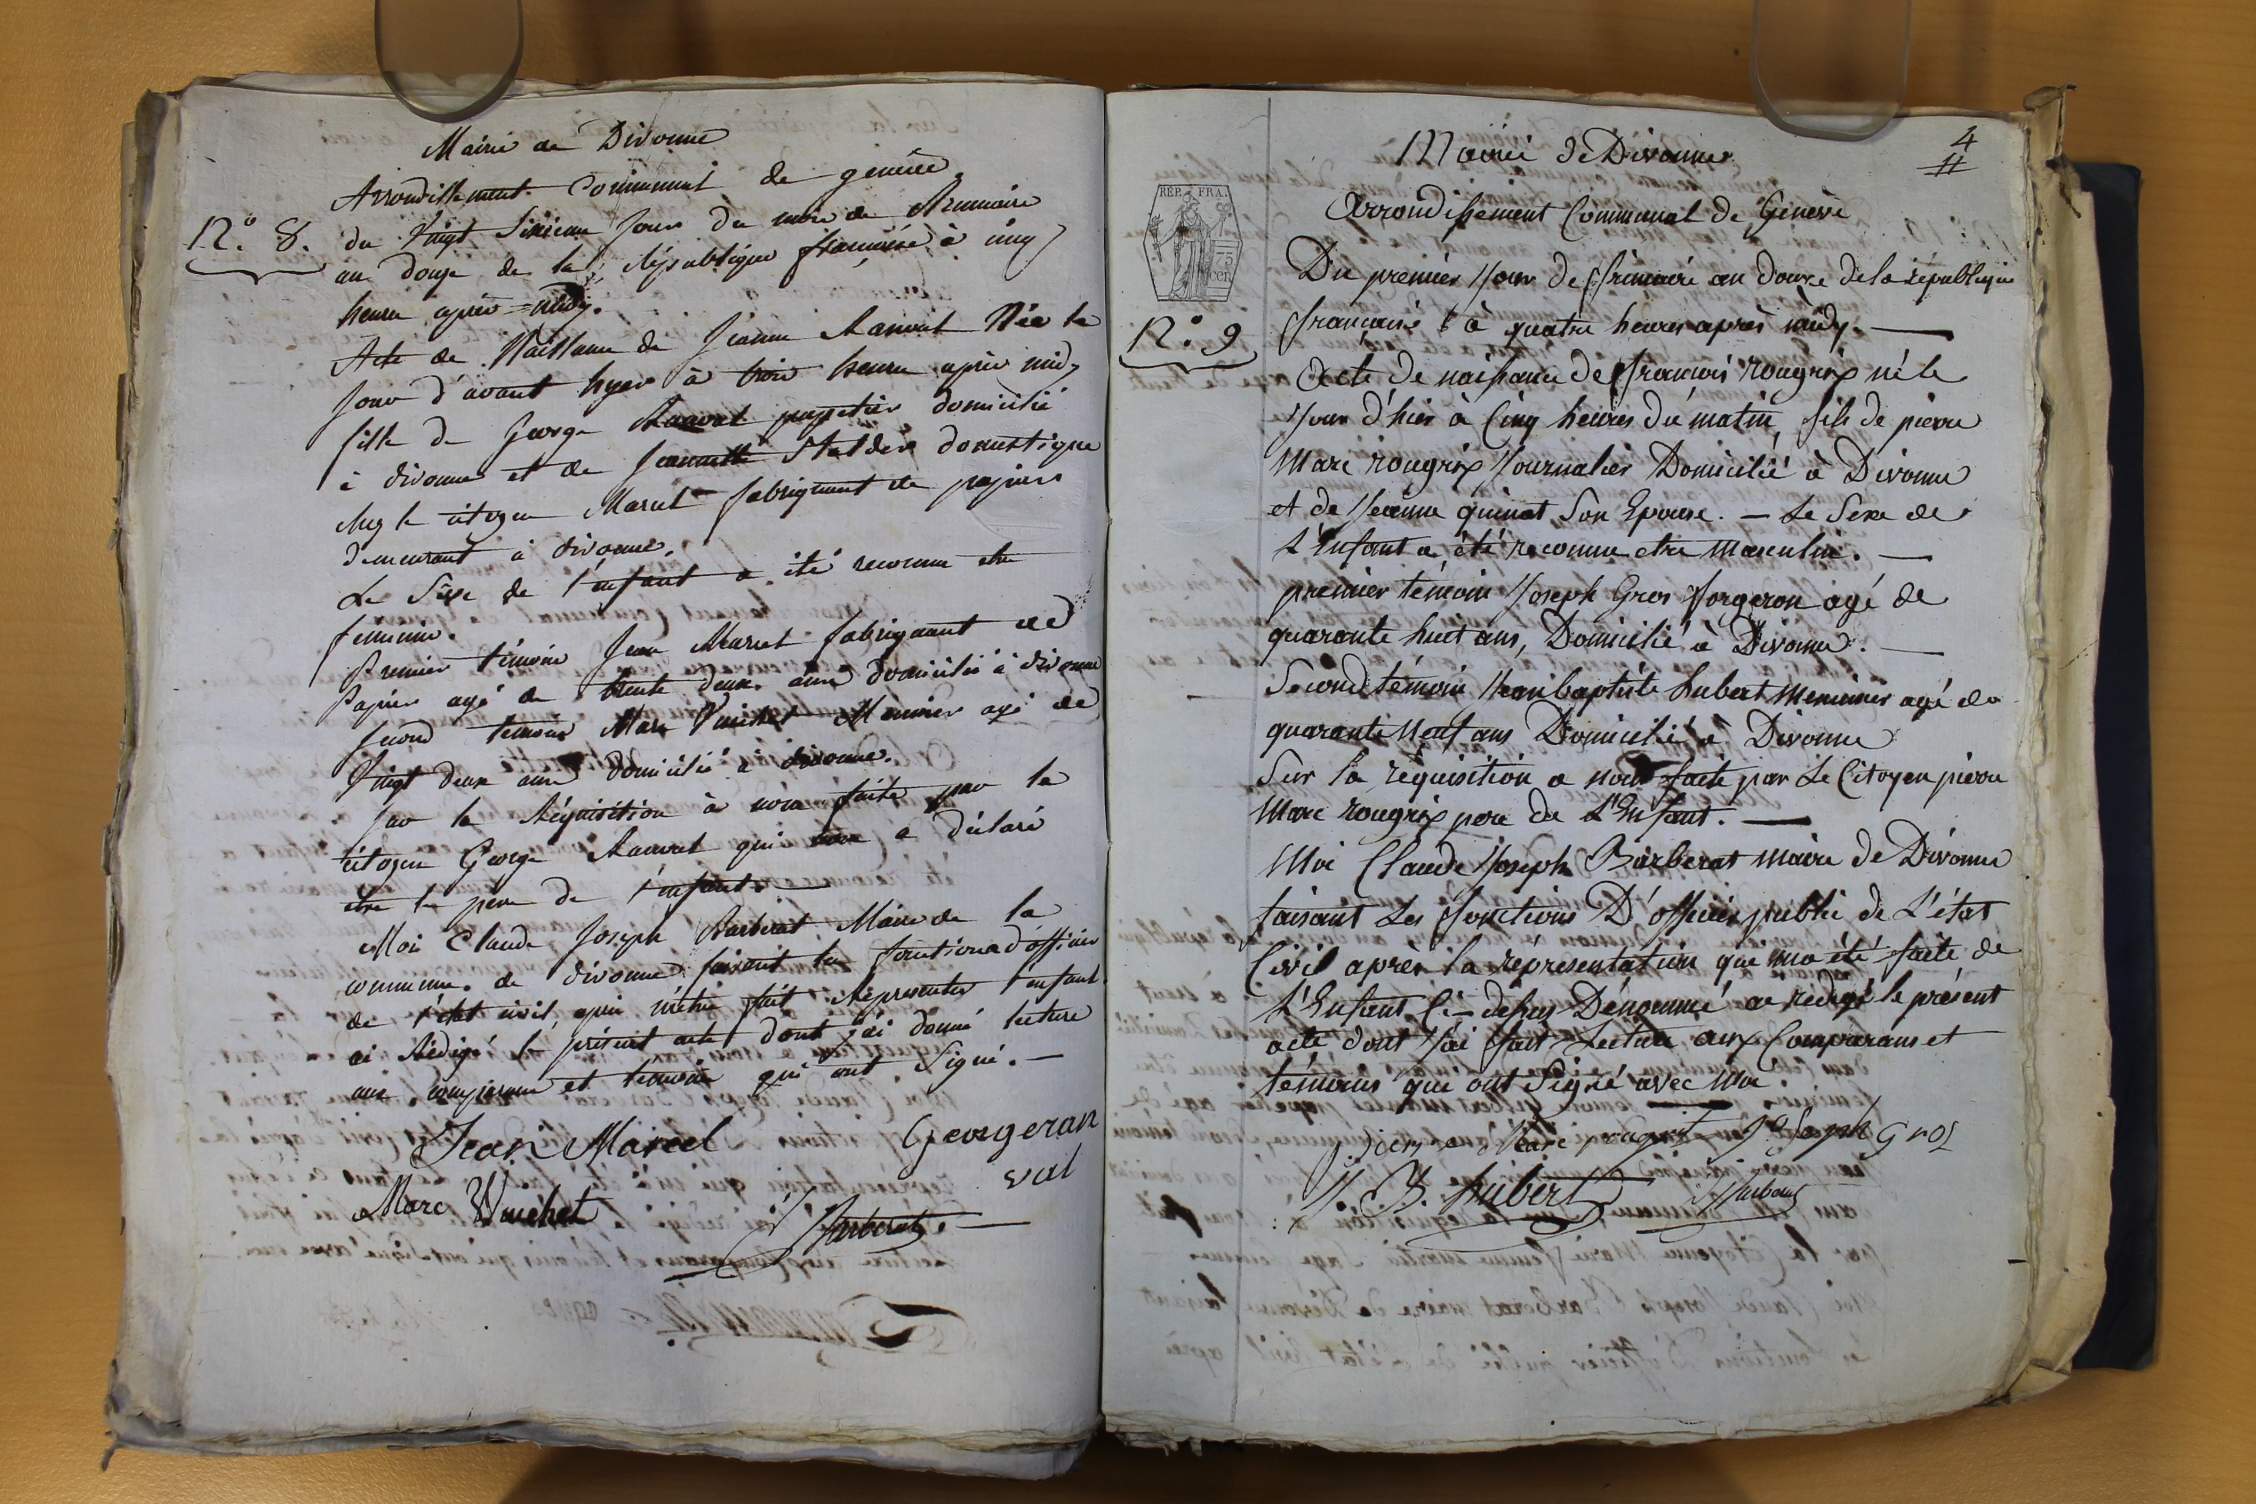 Mairie de Divonne
Arrondissement Communal de genève
N.º 8.
du Vingt Sixieme Jour du mois de Brumaire
an douze de la République française à cinq
heure après=midy.
Acte de Naissance de Jeanne Ranvat Née le
Jour d'avant hyer à trois heure après midy
fille de George Ranvat papetier domicilié
à divonne et de Jeannette Stalder domestique
chez le citoyen Marcel fabriquant de papiers
demeurant à divonne.
Le Sexe de l'enfant a été reconnu etre
feminin.
Premier témoin Jean Marcel fabriquant de
Papier agé de trente deux ans domicilié à divonne
second temoin Marc Vuichet Meunier agé de
Vingt deux ans domicilié à divonne.
sur la Réquisition à nous faite par le
citoyen George Ranvat qui nous a déclaré
etre le père de l'enfant.
Moi Claude Joseph Barberat Maire de la
commune de divonne faisant les fonctions d'officier
de l'état civil, après m'etre fait Représenter l'enfant
ai Rédigé le présent acte dont j'ai donné lecture
aux comparans et temoins qui ont Signé.
Jean Marcel
Georgeran
val
Marc Vuichet
Barberat
4
Mairie de Divonne
REP. FRA.
75
cen.
Arrondissement Communal de Genève
Du premier Jour de frimaire an douze de la république
N.º 9
française à quatre heures après midy.
Acte de naissance de françois rougrix né le
Jour d'hier à Cinq heures du matin, fils de pierre
Marc rougrix Journalier Domicilié à Divonne
et de Jeanne quinat Son Epouse. — Le Sexe de
L'Enfant a été reconnu etre Masculin.
premier témoin Joseph Gros forgeron agé de
quarante huit ans, Domicilié à Divonne.
Second témoin Jean baptiste hubert Menuisier agé de
quarante Neuf ans Domicilié à Divonne
Sur la réquisition a nous faite par Le Citoyen pierre
Marc rougrix pere de L'Enfant.
Moi Claude Joseph Barberat Maire de Divonne
faisant Les fonctions D'officier public de L'état
Civil après la réprésentation qui m'a été faite de
L'Enfant Ci-dessus Dénommé ai rédigé le présent
acte dont J'ai fait Lecture aux Comparans et
témoins qui ont Signé avec Moi.
pierre Marc rougrix Joseph gros
J. B. hubert Barberat